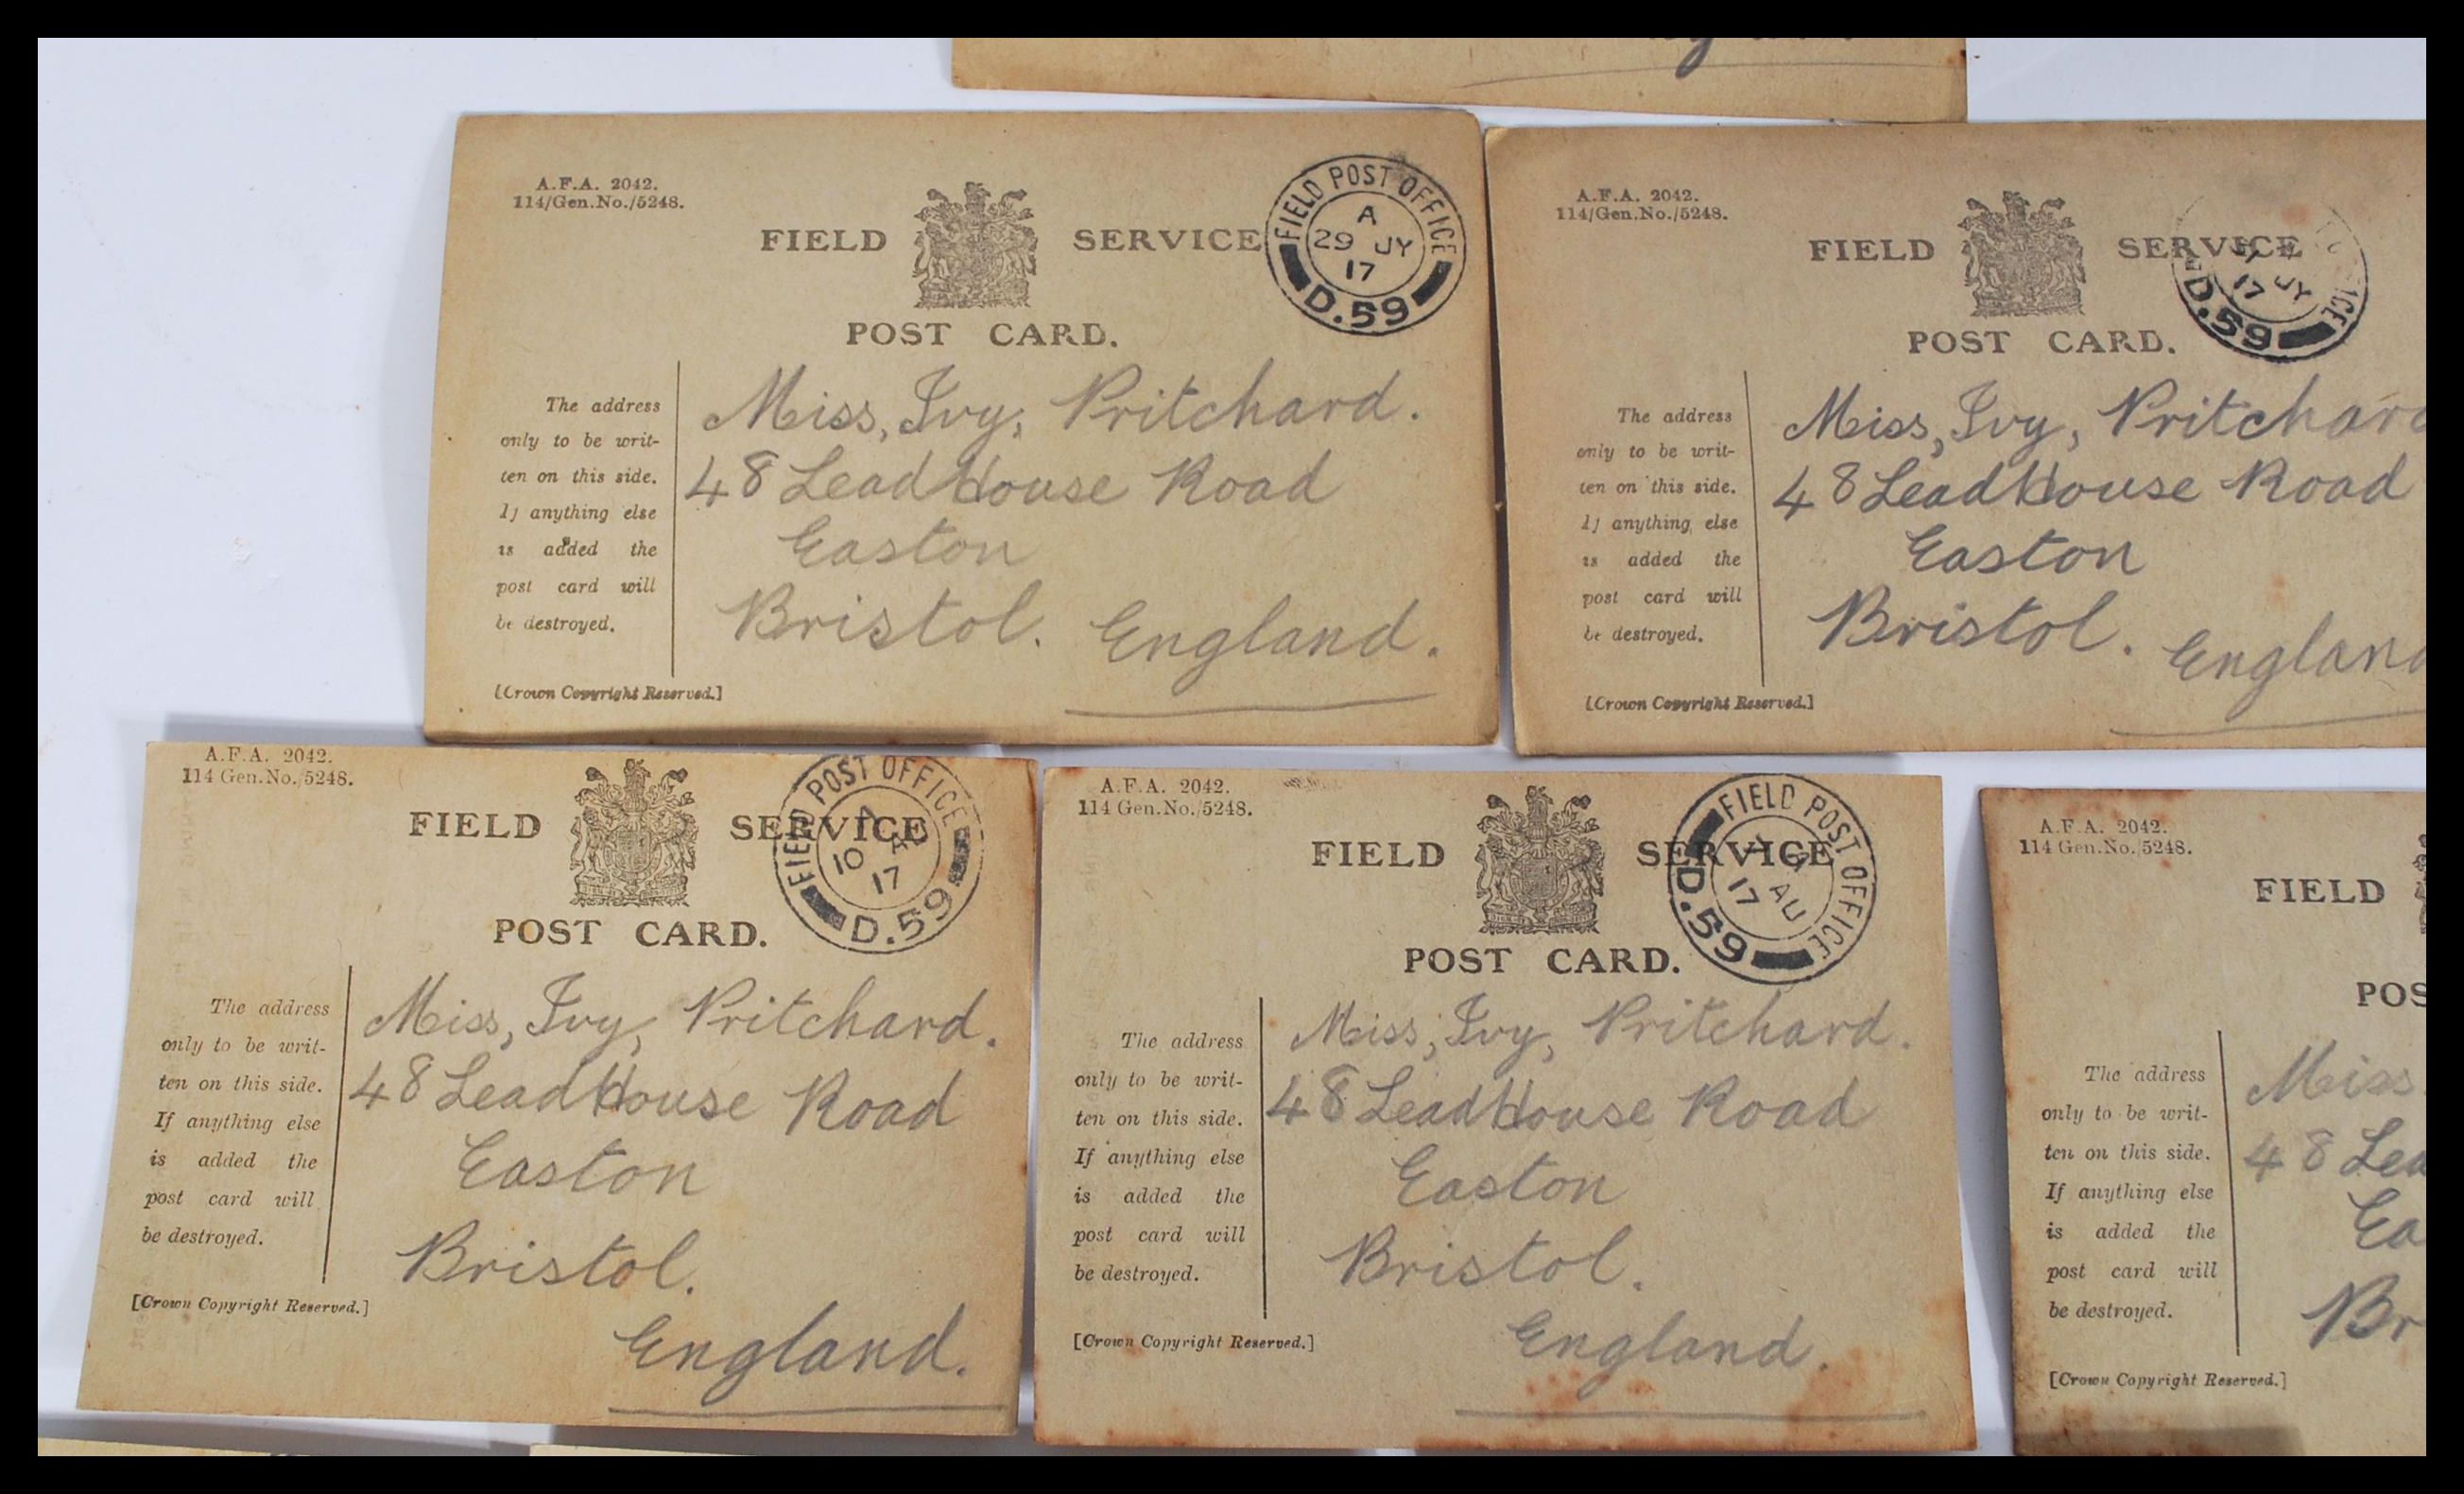 A.F.A. 2042.
114/Gen.No./5248.
FIELD SERVICE
POST CARD.
FIELD POST OFFICE
A
29 JY
17
D.59
The address
only to be writ-
ten on this side.
If anything else
is added the
post card will
be destroyed.
[Crown Copyright Reserved.]
Miss, Ivy, Pritchard.
48 Lead House Road
Easton
Bristol. England.
A.F.A. 2042.
114/Gen.No./5248.
FIELD SERVICE
POST CARD.
JY
17
D.59
The address
only to be writ-
ten on this side.
If anything else
is added the
post card will
be destroyed.
[Crown Copyright Reserved.]
Miss, Ivy, Pritchar
48 Lead House Road
Easton
Bristol. Englan
A.F.A. 2042.
114 Gen.No./5248.
FIELD SERVICE
POST CARD.
FIELD POST OFFICE
A
10
17
D.59
The address
only to be writ-
ten on this side.
If anything else
is added the
post card will
be destroyed.
[Crown Copyright Reserved.]
Miss, Ivy, Pritchard.
48 Lead House Road
Easton
Bristol.
England.
A.F.A. 2042.
114 Gen.No./5248.
FIELD SERVICE
POST CARD.
FIELD POST OFFICE
AU
17
D.59
The address
only to be writ-
ten on this side.
If anything else
is added the
post card will
be destroyed.
[Crown Copyright Reserved.]
Miss, Ivy, Pritchard.
48 Lead House Road
Easton
Bristol.
England.
A.F.A. 2042.
114 Gen.No./5248.
FIELD
POS
The address
only to be writ-
ten on this side.
If anything else
is added the
post card will
be destroyed.
[Crown Copyright Reserved.]
Miss
48 Lea
Ea
Br